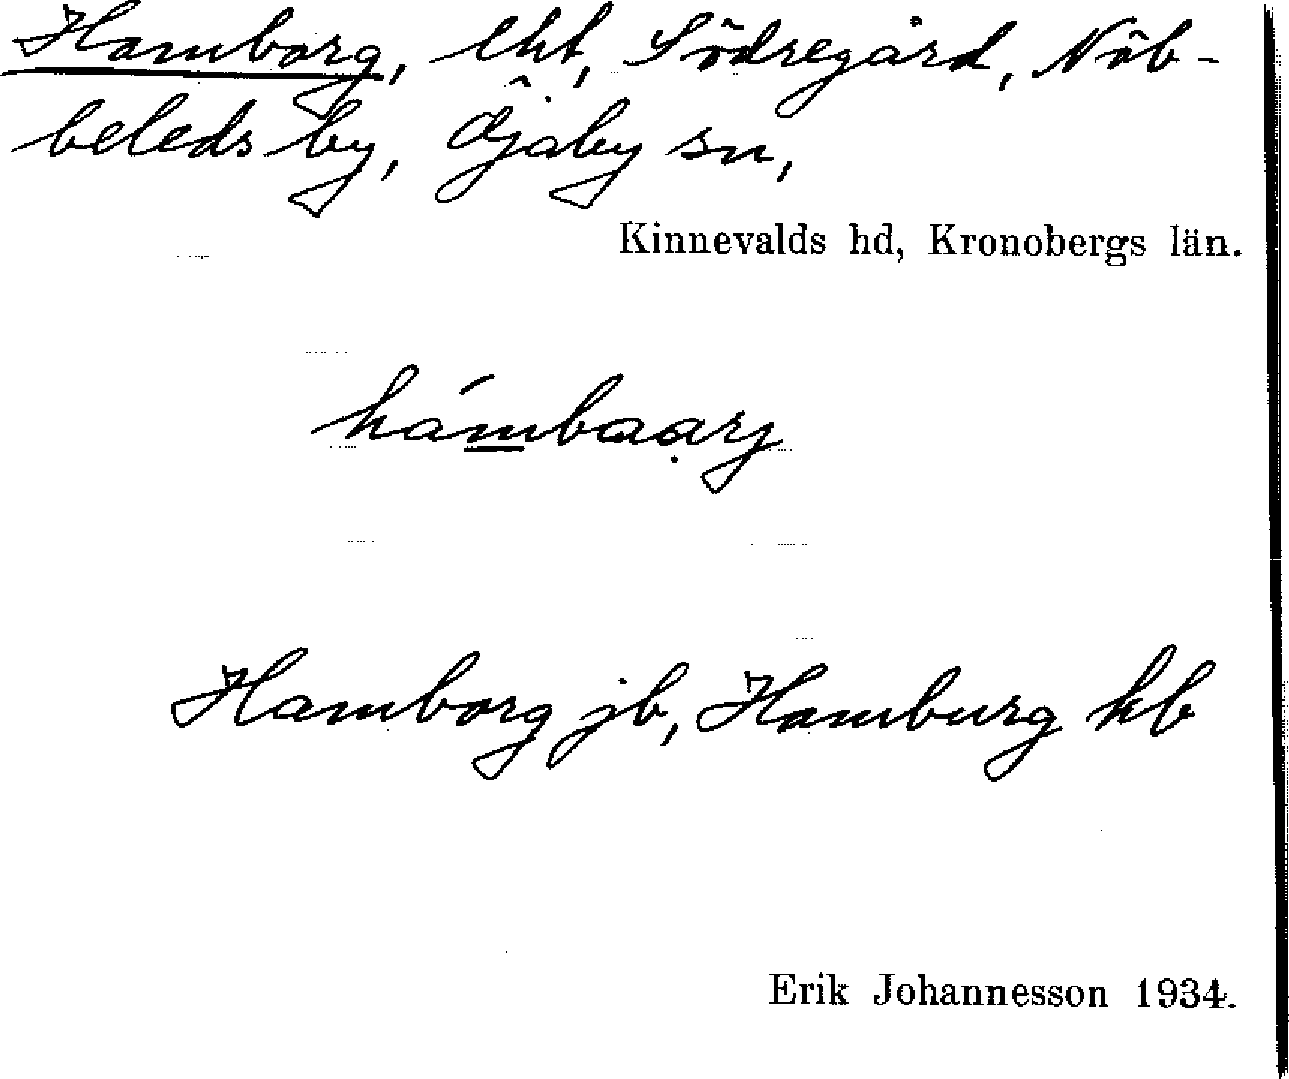 Hamborg, lht, Södregård, Nöb-
beleds by, Öjaby sn,
Kinnevalds hd, Kronobergs län.
hámbaarj
Hamborg jb, Hamburg hb
Erik Johannesson 1934.